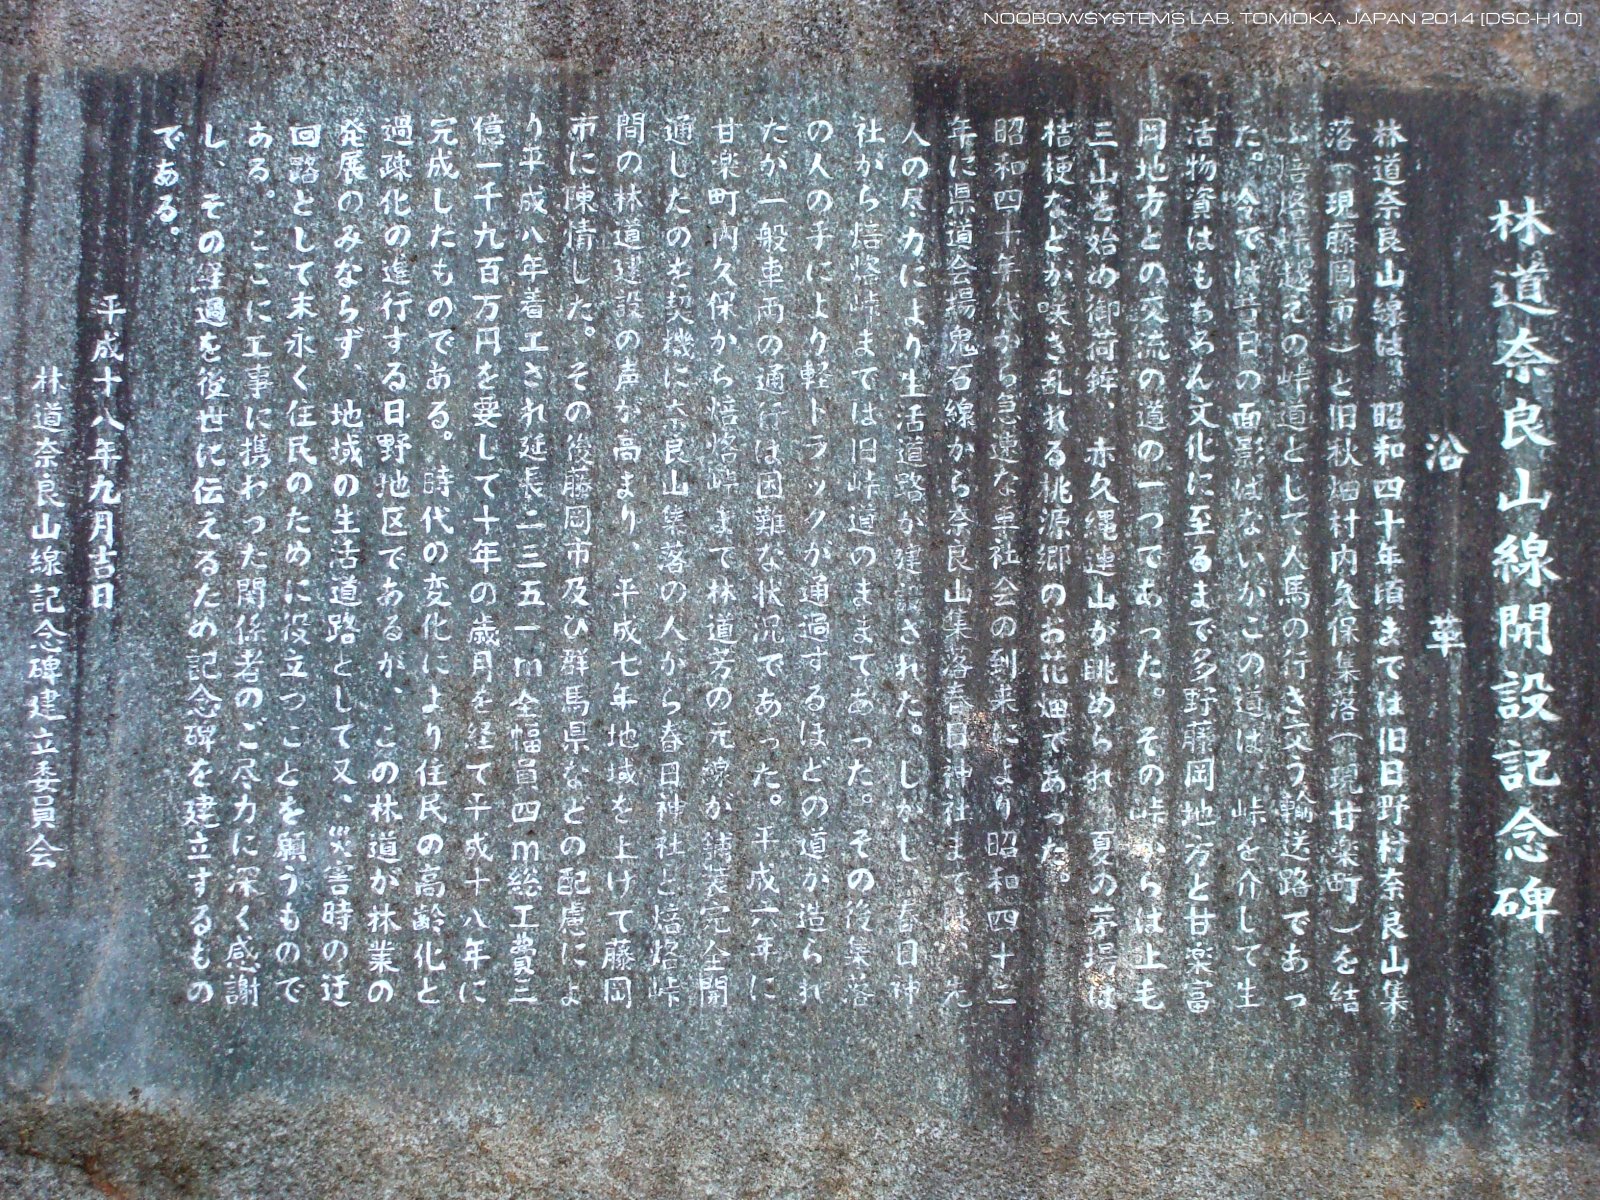 NOOBOWSYSTEMS LAB. TOMIOKA, JAPAN 2014 [DSC-H10]
林道奈良山線開設記念碑
沿革
林道奈良山線は、昭和四十年頃までは旧日野村奈良山集
落(現藤岡市)と旧秋畑村内久保集落(現甘楽町)を結
ぶ焙烙峠越えの峠道として人馬の行き交う輸送路であっ
た。今では昔日の面影はないがこの道は、峠を介して生
活物資はもちろん文化に至るまで多野藤岡地方と甘楽富
岡地方との交流の道の一つであった。その峠からは上毛
三山を始め御荷鉾、赤久縄連山が眺められ、夏の茅場は
桔梗などが咲き乱れる桃源郷のお花畑であった。
昭和四十年代から急速な車社会の到来により昭和四十二
年に県道会場鬼石線から奈良山集落春日神社まで 先
人の尽力により生活道路が建設された。しかし春日神
社から焙烙峠までは旧峠道のままであった。その後集落
の人の手により軽トラックが通過するほどの道が造られ
たが一般車両の通行は困難な状況であった。平成六年に
甘楽町内久保から焙烙峠まで林道芳の元線が舗装完全開
通したのを契機に奈良山集落の人から春日神社と焙烙峠
間の林道建設の声が高まり、平成七年地域を上げて藤岡
市に陳情した。その後藤岡市及び群馬県などの配慮によ
り平成八年着工され延長二三五一m全幅員四m総工費三
億一千九百万円を要して十年の歳月を経て平成十八年に
完成したものである。時代の変化により住民の高齢化と
過疎化の進行する日野地区であるが、この林道が林業の
発展のみならず、地域の生活道路として又、災害時の迂
回路として末永く住民のために役立つことを願うもので
ある。ここに工事に携わった関係者のご尽力に深く感謝
し、その経過を後世に伝えるため記念碑を建立するもの
である。
平成十八年九月吉日
林道奈良山線記念碑建立委員会